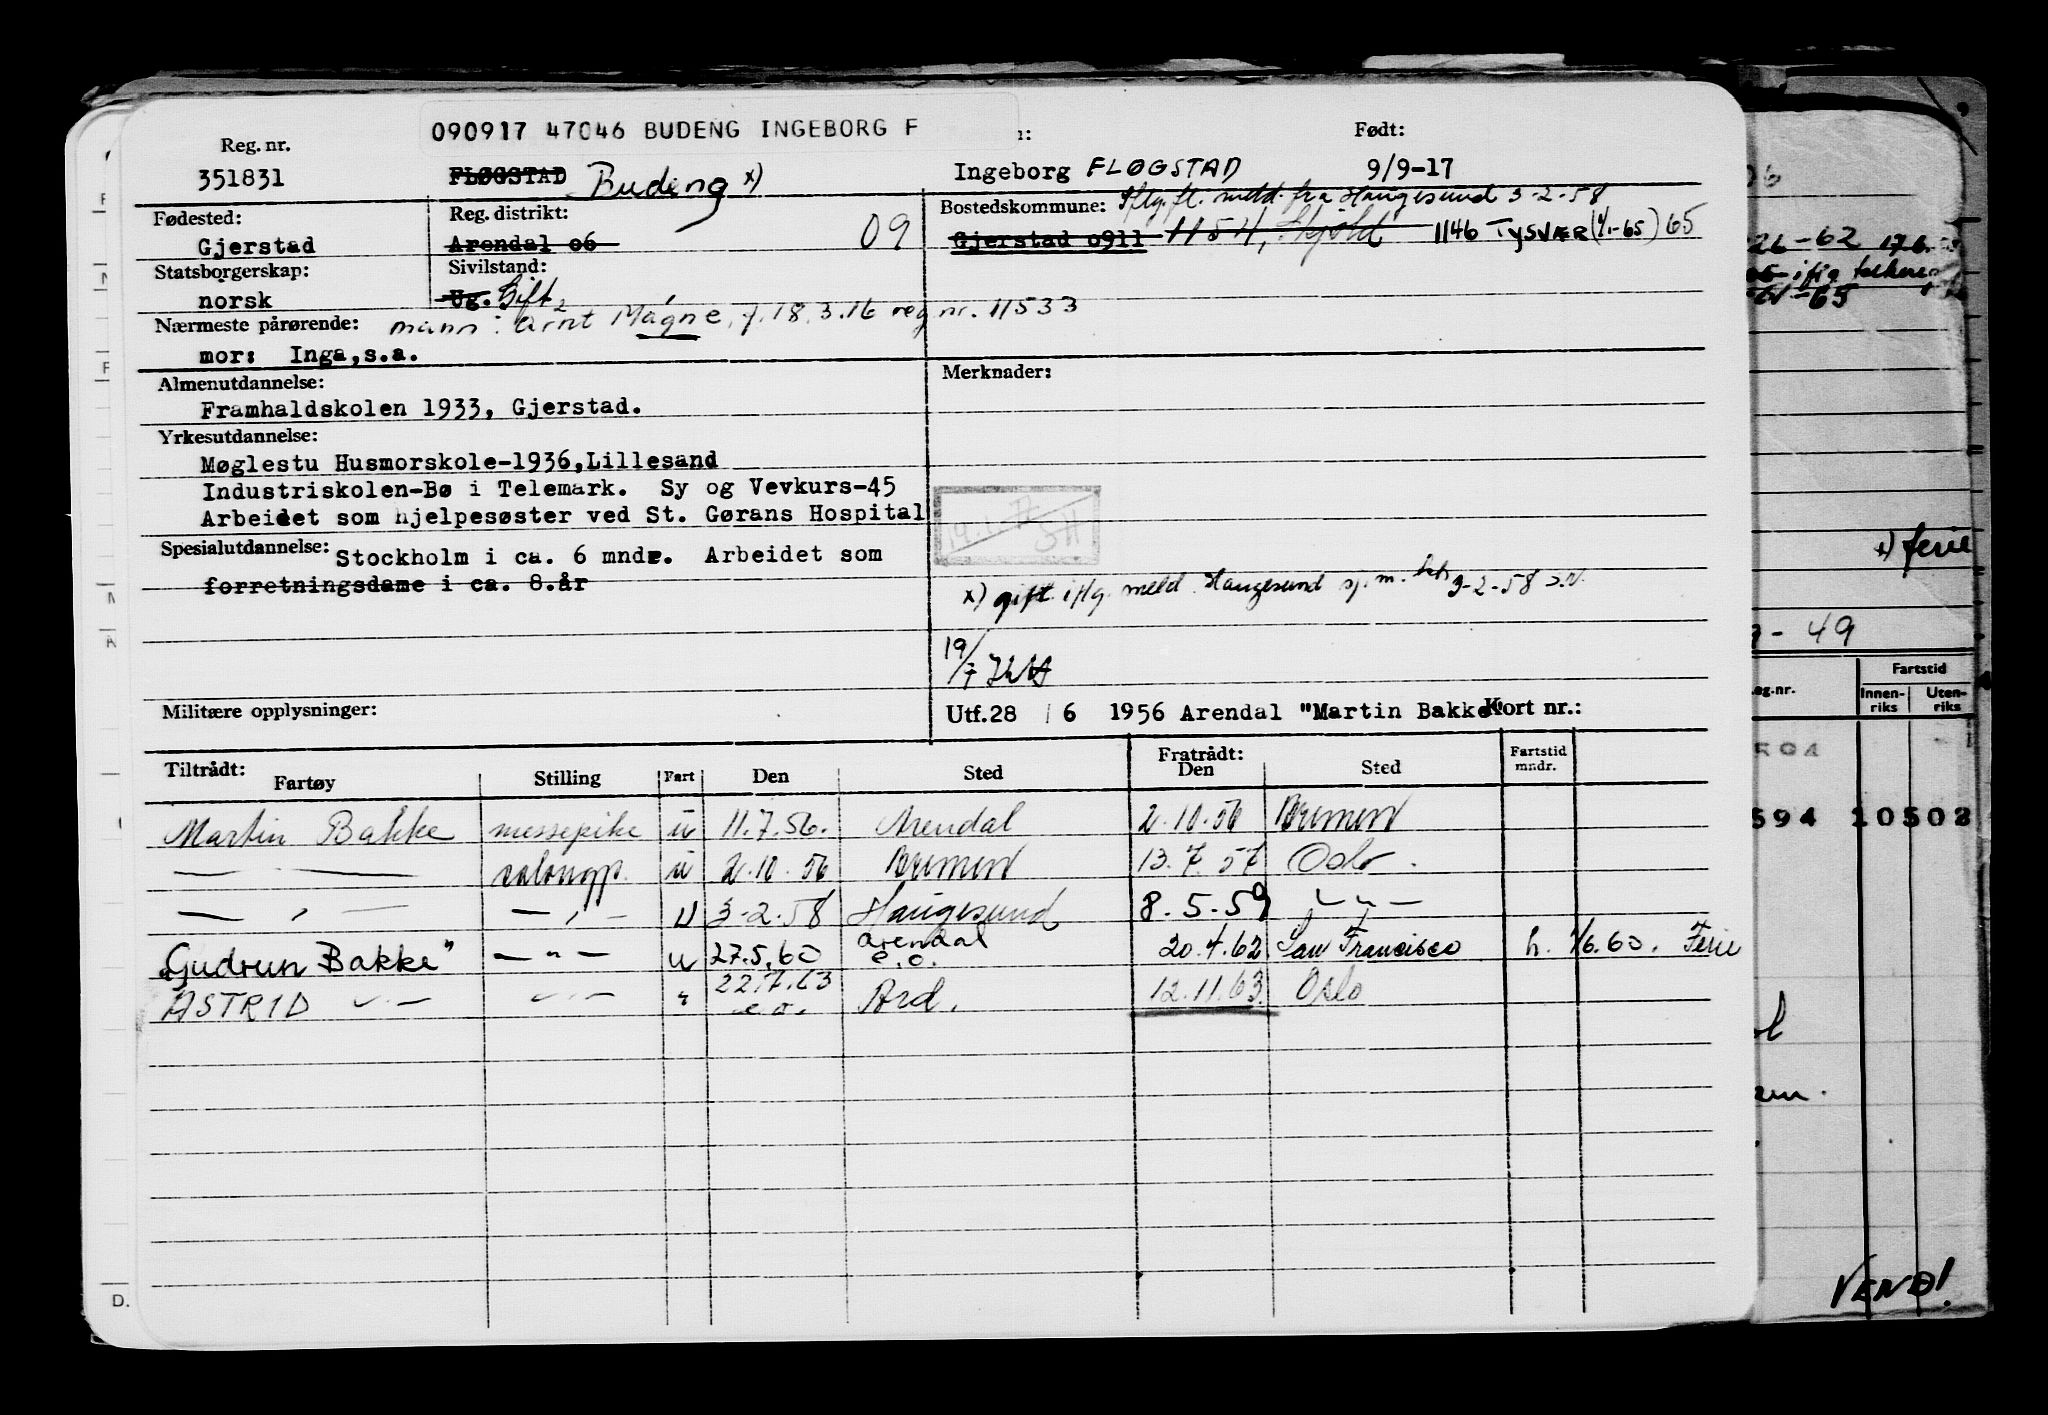 090917 47046 BUDENG INGEBORG F
Reg. nr.
Født:
351831 FLØGSTAD Budeng x) Ingeborg FLØGSTAD 9/9-17
Fødested:
Gjerstad
Reg. distrikt:
Arendal 06 09
Bostedskommune: Iflg. fl. meld. fra Haugesund 3-2-58
Gjerstad 0911 1154, Skjold 1146 TYSVÆR (1/1-65) 65
Statsborgerskap:
norsk
Sivilstand:
Ug. Gift
Nærmeste pårørende: mann: Arnt Magne, f. 18.3.16 reg nr. 11533
mor: Inga, s.a.
Almenutdannelse:
Framhaldskolen 1933, Gjerstad.
Yrkesutdannelse:
Møglestu Husmorskole-1936, Lillesand
Industriskolen-Bø i Telemark. Sy og Vevkurs-45
Arbeidet som hjelpesøster ved St. Gørans Hospital
Spesialutdannelse: Stockholm i ca. 6 mndr. Arbeidet som
forretningsdame i ca. 8.år
Merknader:
x) gift iflg. meld. Haugesund sj.m. ktr 3-2-58
19/7
Militære opplysninger:
Utf. 28 / 6 1956 Arendal "Martin Bakke" Kort nr.:
Tiltrådt: Fartøy Stilling Fart Den Sted Fratrådt: Den Sted Fartstid mndr.
Martin Bakke messepike u 11.7.56. Arendal 2.10.56 Bremen
— — salongp. u 2.10.56 Bremen 13.7.57 Oslo.
— " — — " — U 3-2-58 Haugesund 8.5.59 — " —
"Gudrun Bakke" — " — u 27.5.60 Arendal e.o. 20.4.62 San Francisco h. 1/6.60. Ferie
ASTRID — " — — " — " 22.7.63 e.o. Ard. 12.11.63. Oslo
D.
26-62
iflg
-65
x) ferie
- 49
Reg.nr.
Fartstid
Innen-riks
Uten-riks
594
594 10502
VEND!